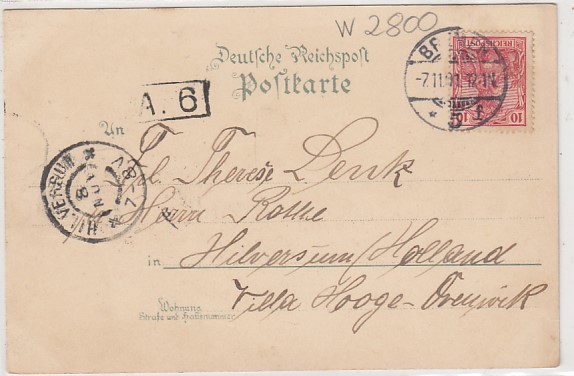 W 2800
Deutsche Reichspost
Postkarte
REICHSPOST
10 10
12-1N
A. 6
An
Frl. Therese Denk
HILVERSUM
8 NOV
7-8V
Herrn Rothe
in Hilversum / Holland
Villa Hooge-
Wohnung
Straße und Hausnummer